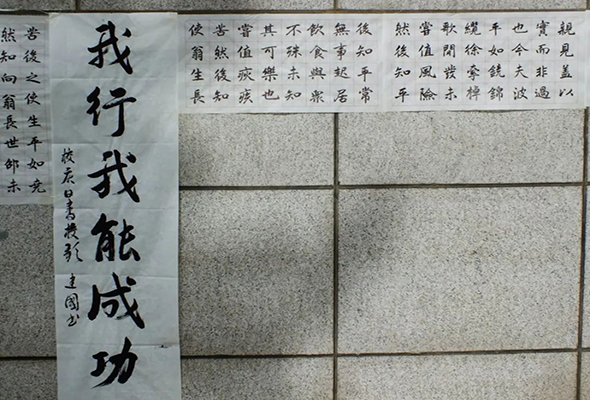 親見蓋以
實而非過
也今夫波
平如鏡錦
纜徐牽棹
歌間發未
嘗值風險
然後知平
後知平常
無事起居
飲食與眾
不殊未知
其可樂也
嘗值疾
苦然後知
使翁生長
我行我能成功
校慶日書 建國書
後之使生平如堯
然知向翁長世邵未